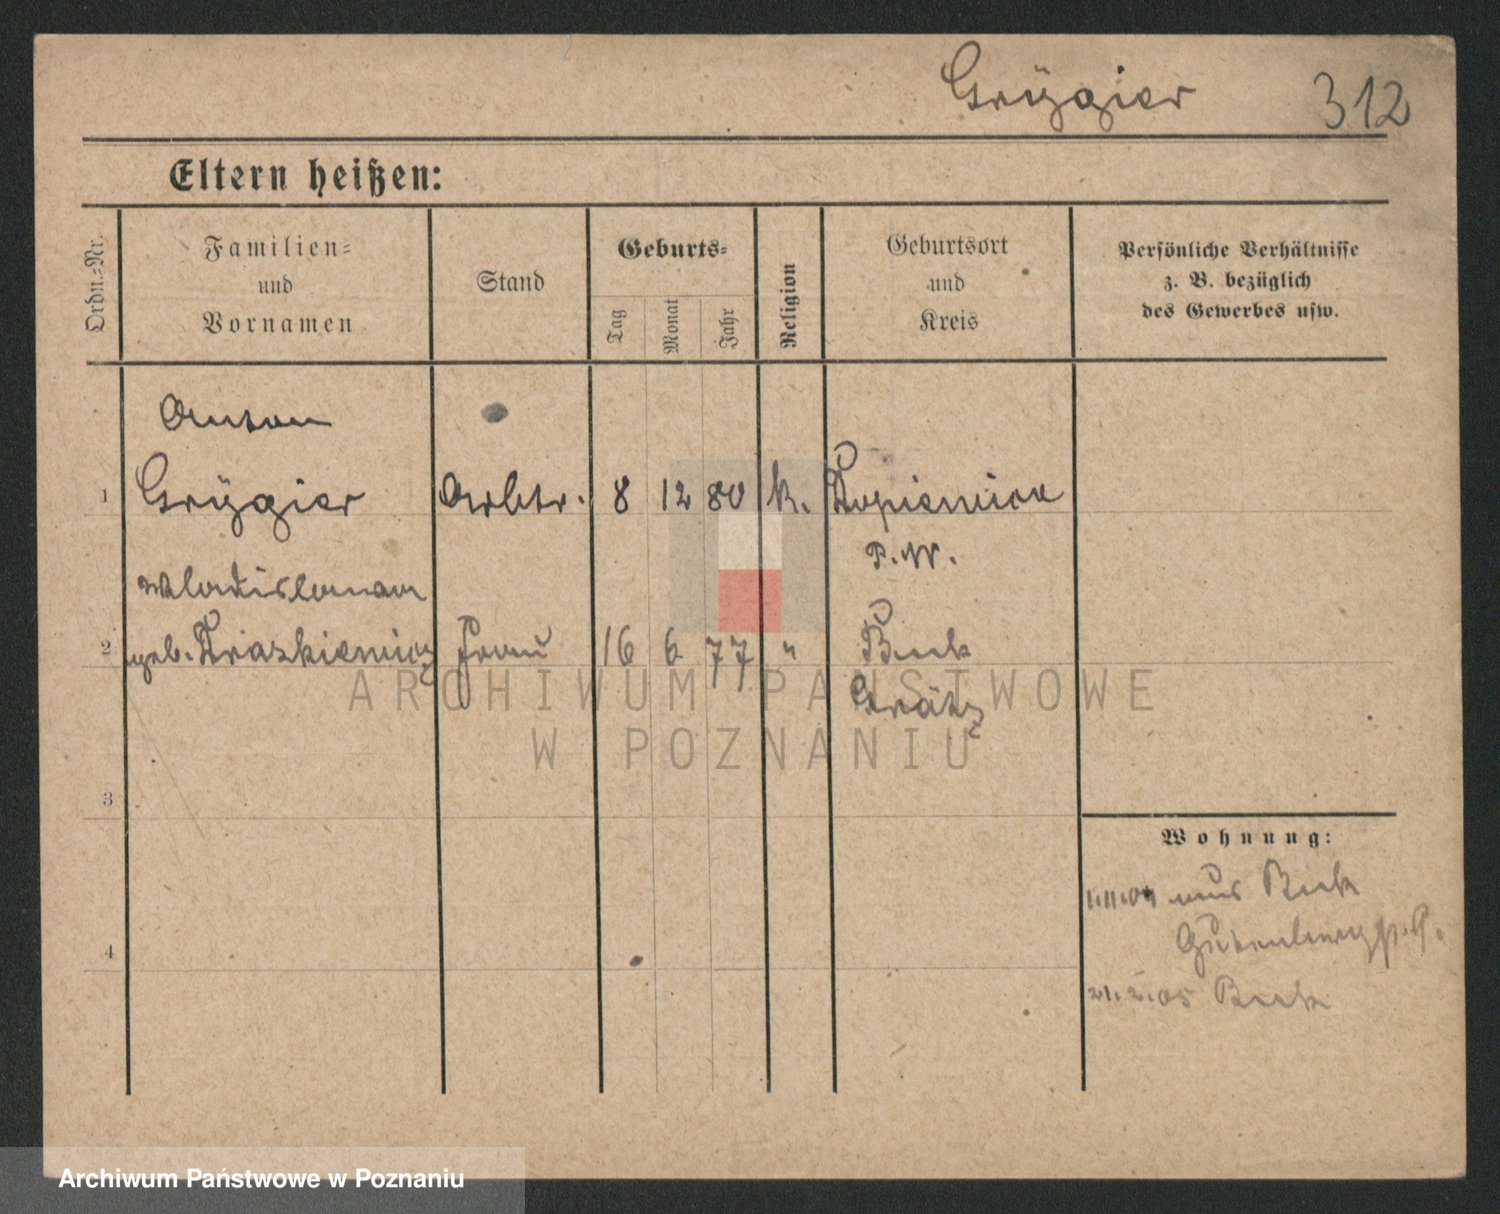 Grÿgier 312
Eltern heißen:
Ordn.=Nr.
Familien=
und
Vornamen
Stand
Geburts=
Tag
Monat
Jahr
Religion
Geburtsort
und
Kreis
Persönliche Verhältnisse
z. B. bezüglich
des Gewerbes usw.
Anton
1 Grÿgier Arbtr. 8 12 80 k.
P. W.
Wladislawa
2 geb. Frau 16 6 77 " Buk
Grätz
ARCHIWUM PAŃSTWOWE
W POZNANIU
3
Wohnung:
1.11.04 aus Buk
4
21.2.05 Buk
Archiwum Państwowe w Poznaniu